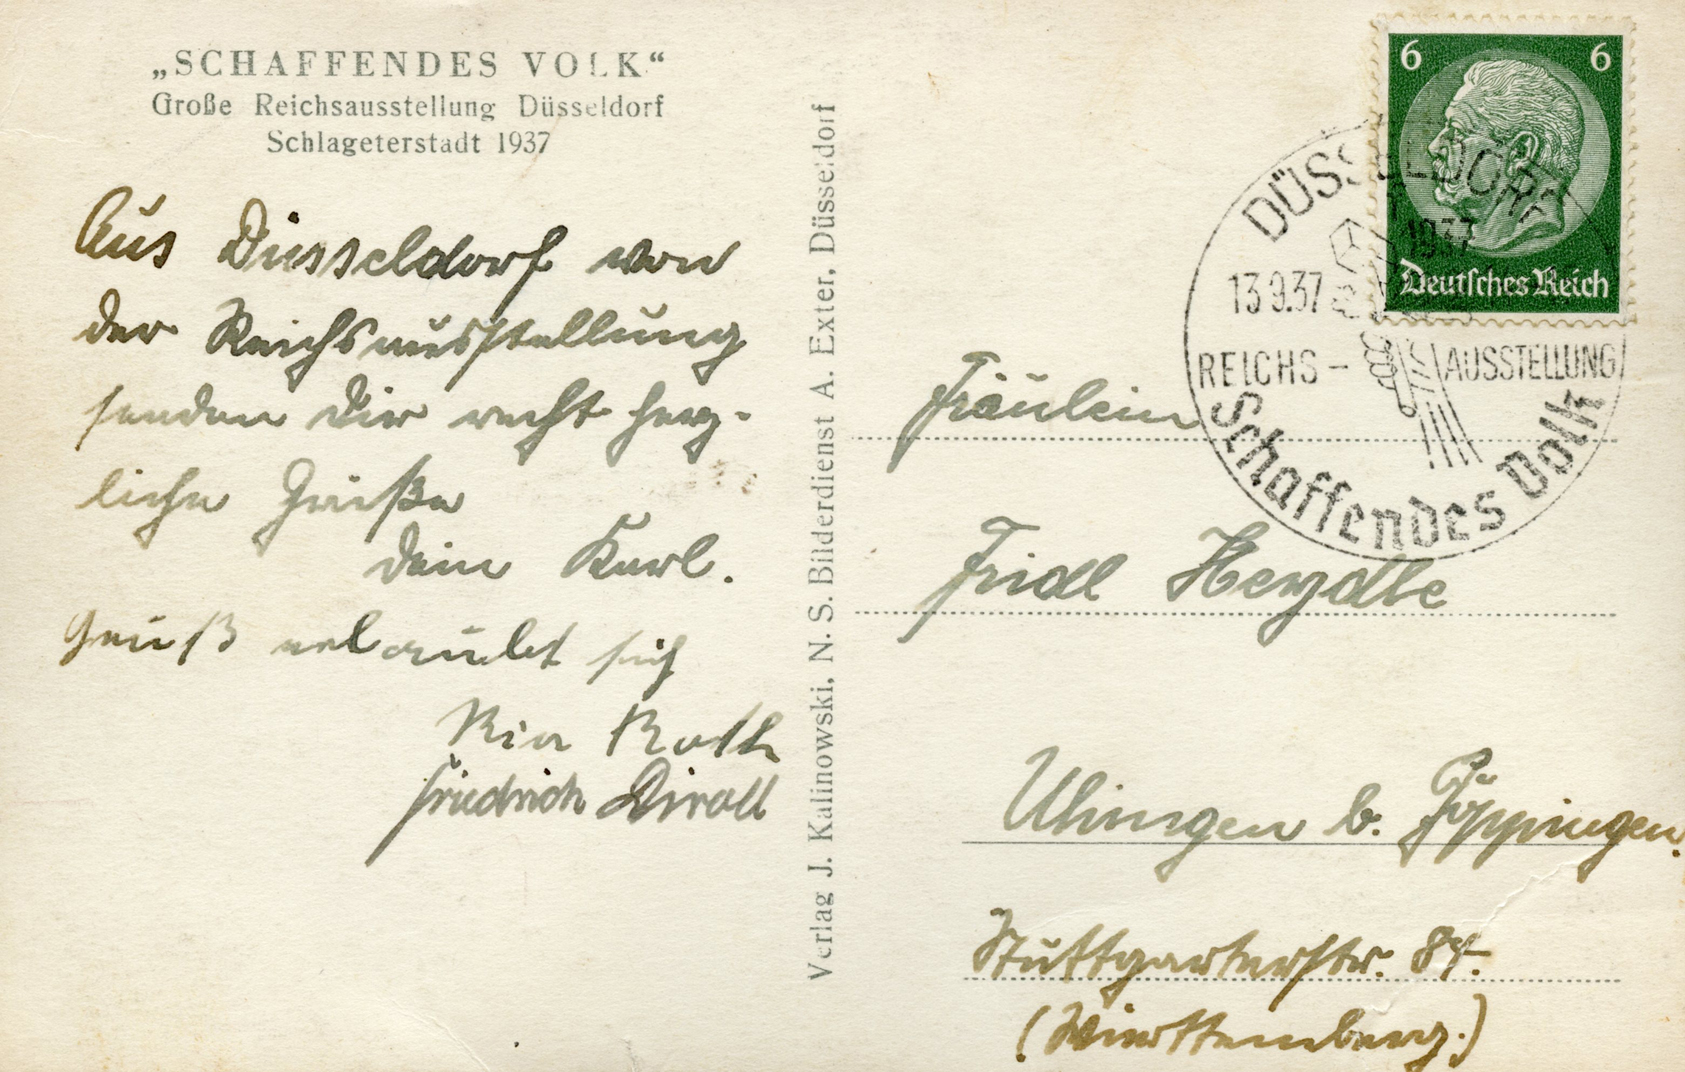 „SCHAFFENDES VOLK“
Große Reichsausstellung Düsseldorf
Schlageterstadt 1937
Aus Düsseldorf von
der Reichsausstellung
senden Dir recht herz-
liche Grüße
Dein Karl.
Gruß erlaubt sich
Ria Roth
Friedrich
Verlag J. Kalinowski, N. S. Bilderdienst A. Exter, Düsseldorf
6 6
Deutsches Reich
DÜSSELDORF
1937
13.9.37
REICHS-AUSSTELLUNG
Schaffendes Volk
Fräulein
Fridl Heydle
Uhingen b. Göppingen.
Stuttgarterstr.
(Württemberg.)